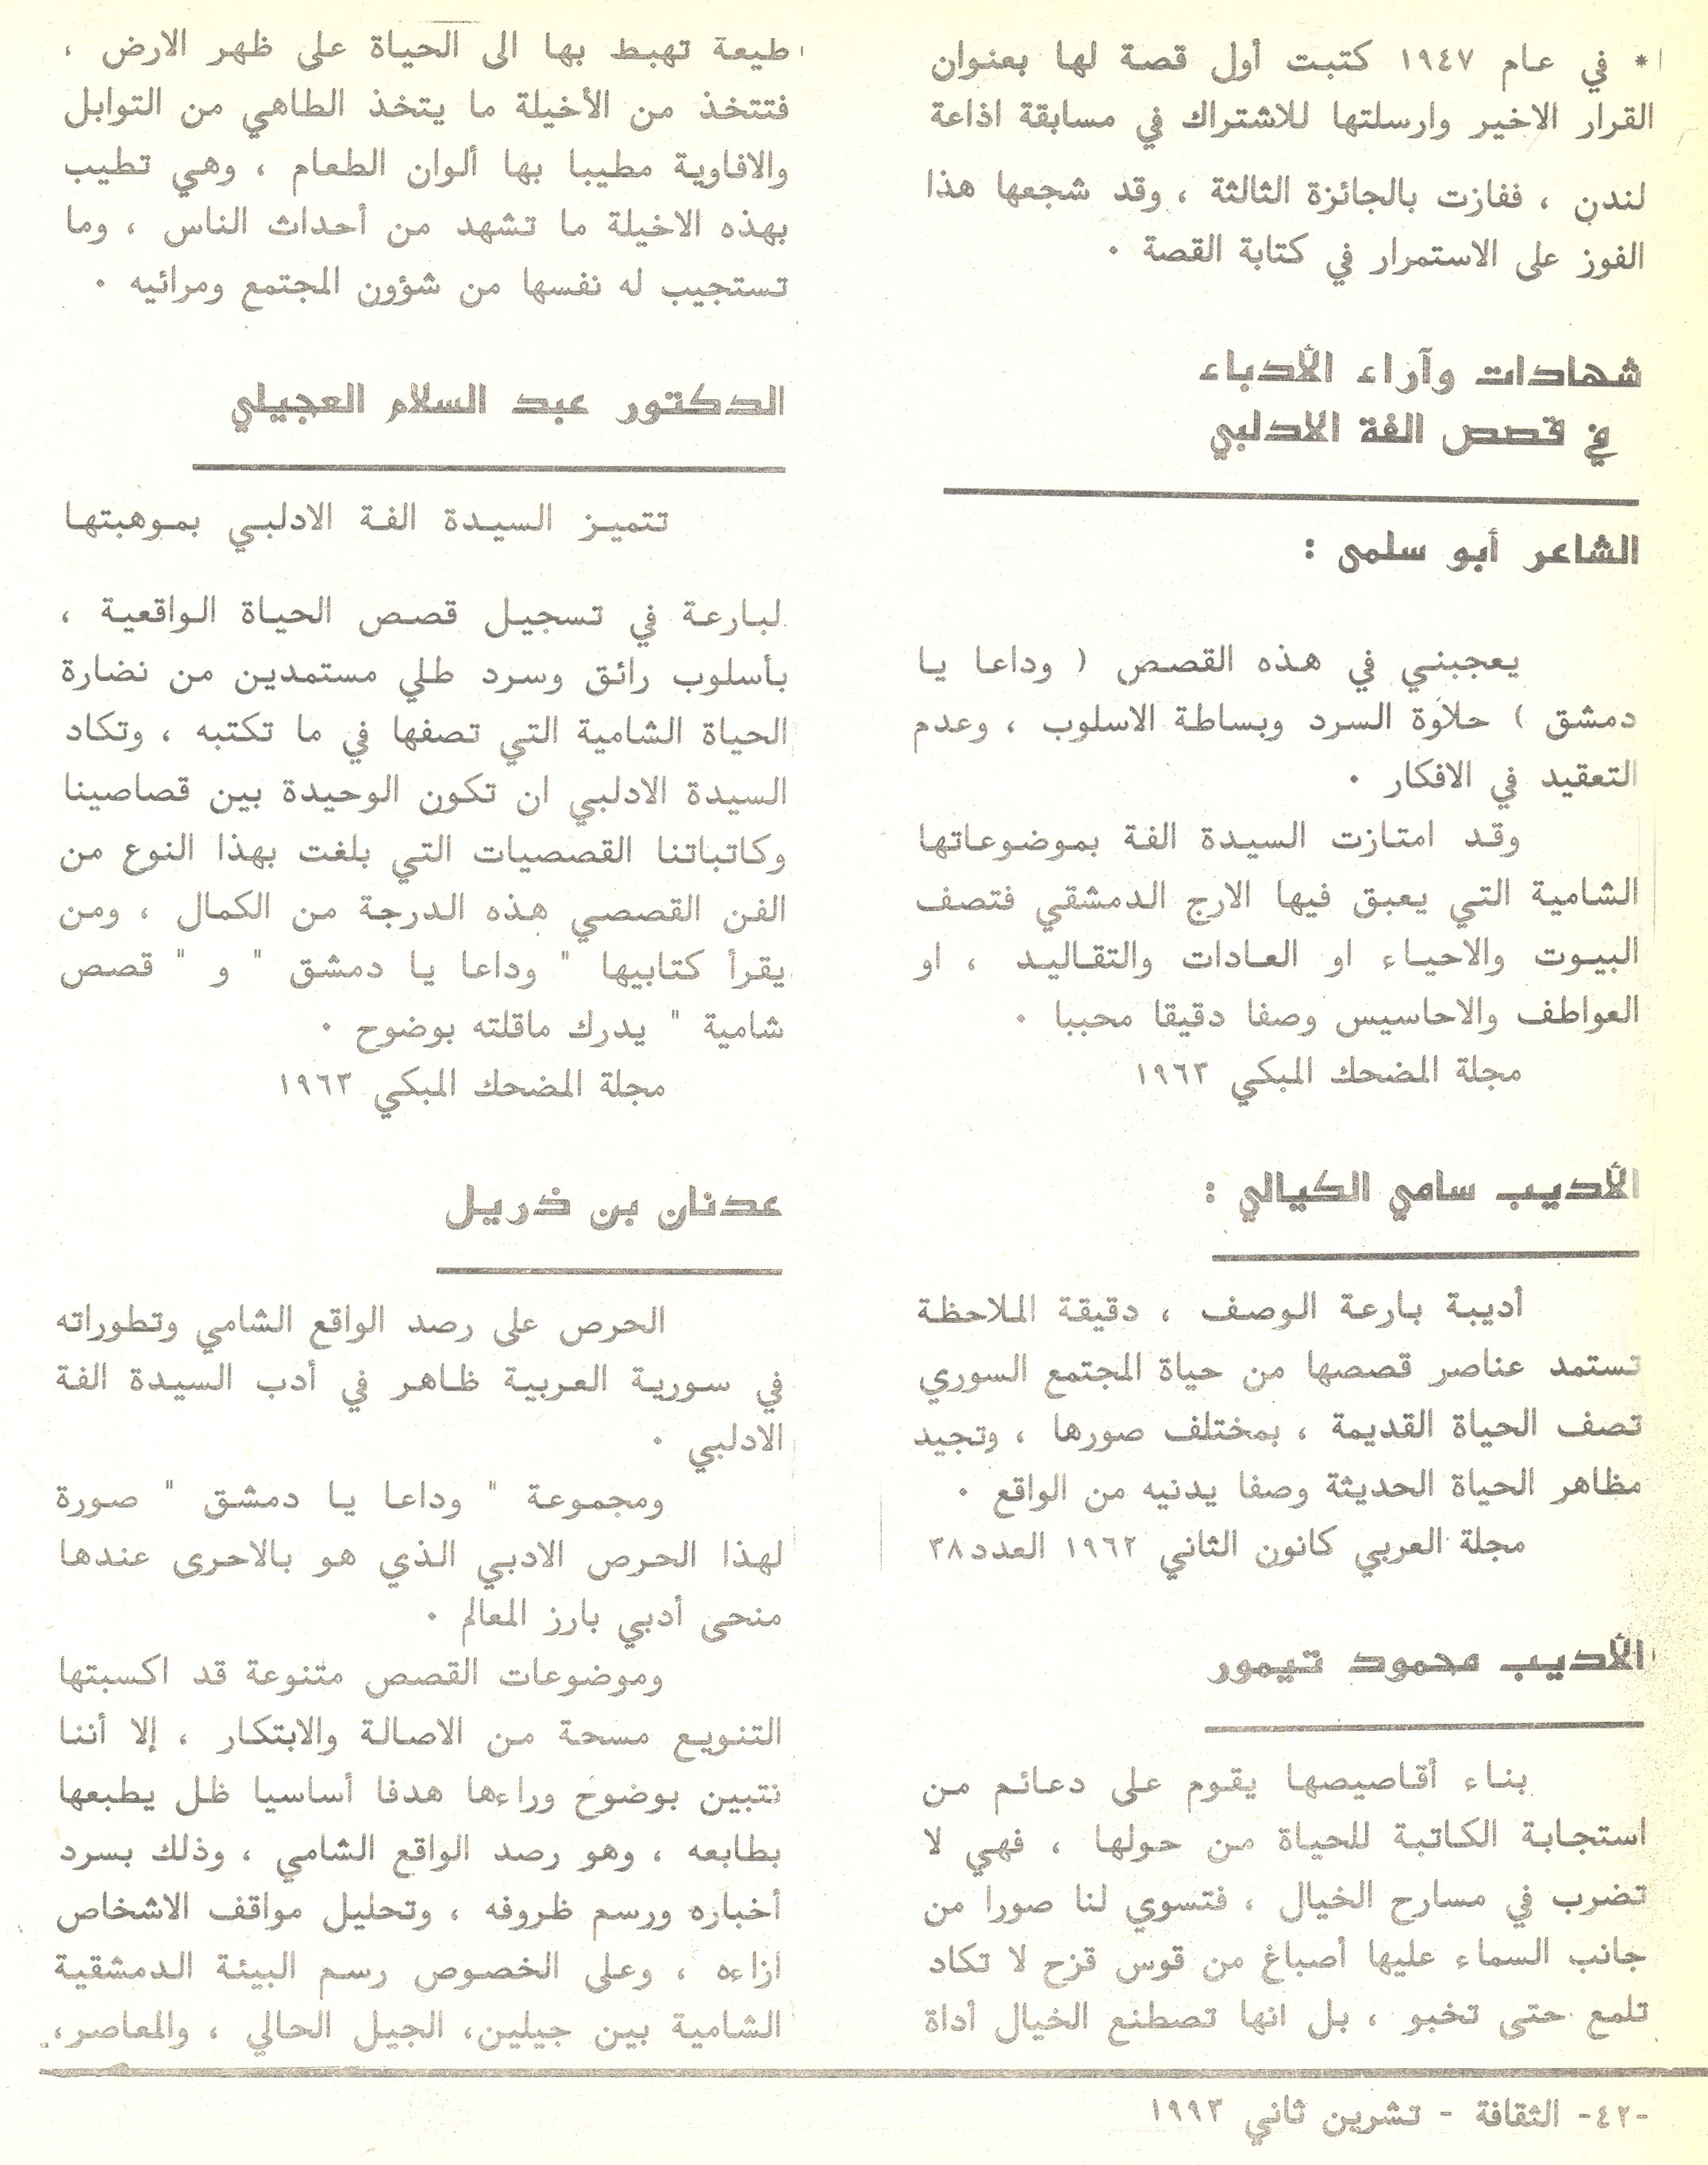 * في عام ١٩٤٧ كتبت أول قصة لها بعنوان
القرار الاخير وارسلتها للاشتراك في مسابقة اذاعة
لندن ، ففازت بالجائزة الثالثة ، وقد شجعها هذا
الفوز على الاستمرار في كتابة القصة ٠
شهادات وآراء الأدباء
في قصص الفة الادلبي
الشاعر أبو سلمى :
يعجبني في هذه القصص ( وداعا يا
دمشق ) حلاوة السرد وبساطة الاسلوب ، وعدم
التعقيد في الافكار ٠
وقد امتازت السيدة الفة بموضوعاتها
الشامية التي يعبق فيها الارج الدمشقي فتصف
البيوت والاحياء او العادات والتقاليد ، او
العواطف والاحاسيس وصفا دقيقا محببا ٠
مجلة المضحك المبكي ١٩٦٣
الأديب سامي الكيالي :
أديبة بارعة الوصف ، دقيقة الملاحظة
تستمد عناصر قصصها من حياة المجتمع السوري
تصف الحياة القديمة ، بمختلف صورها ، وتجيد
مظاهر الحياة الحديثة وصفا يدنيه من الواقع ٠
مجلة العربي كانون الثاني ١٩٦٢ العدد ٣٨
الأديب محمود تيمور
بناء أقاصيصها يقوم على دعائم من
استجابة الكاتبة للحياة من حولها ، فهي لا
تضرب في مسارح الخيال ، فتسوي لنا صورا من
جانب السماء عليها أصباغ من قوس قزح لا تكاد
تلمع حتى تخبو ، بل انها تصطنع الخيال أداة
طيعة تهبط بها الى الحياة على ظهر الارض ،
فتتخذ من الأخيلة ما يتخذ الطاهي من التوابل
والافاوية مطيبا بها ألوان الطعام ، وهي تطيب
بهذه الاخيلة ما تشهد من أحداث الناس ، وما
تستجيب له نفسها من شؤون المجتمع ومرائيه ٠
الدكتور عبد السلام العجيلي
تتميز السيدة الفة الادلبي بموهبتها
لبارعة في تسجيل قصص الحياة الواقعية ،
بأسلوب رائق وسرد طلي مستمدين من نضارة
الحياة الشامية التي تصفها في ما تكتبه ، وتكاد
السيدة الادلبي ان تكون الوحيدة بين قصاصينا
وكاتباتنا القصصيات التي بلغت بهذا النوع من
الفن القصصي هذه الدرجة من الكمال ، ومن
يقرأ كتابيها " وداعا يا دمشق " و " قصص
شامية " يدرك ماقلته بوضوح ٠
مجلة المضحك المبكي ١٩٦٣
عدنان بن ذريل
الحرص على رصد الواقع الشامي وتطوراته
في سورية العربية ظاهر في أدب السيدة الفة
الادلبي ٠
ومجموعة " وداعا يا دمشق " صورة
لهذا الحرص الادبي الذي هو بالاحرى عندها
منحى أدبي بارز المعالم ٠
وموضوعات القصص متنوعة قد اكسبتها
التنويع مسحة من الاصالة والابتكار ، إلا أننا
نتبين بوضوح وراءها هدفا أساسيا ظل يطبعها
بطابعه ، وهو رصد الواقع الشامي ، وذلك بسرد
أخباره ورسم ظروفه ، وتحليل مواقف الاشخاص
ازاءه ، وعلى الخصوص رسم البيئة الدمشقية
الشامية بين جيلين، الجيل الحالي ، والمعاصر،
-٤٢- الثقافة - تشرين ثاني ١٩٩٣